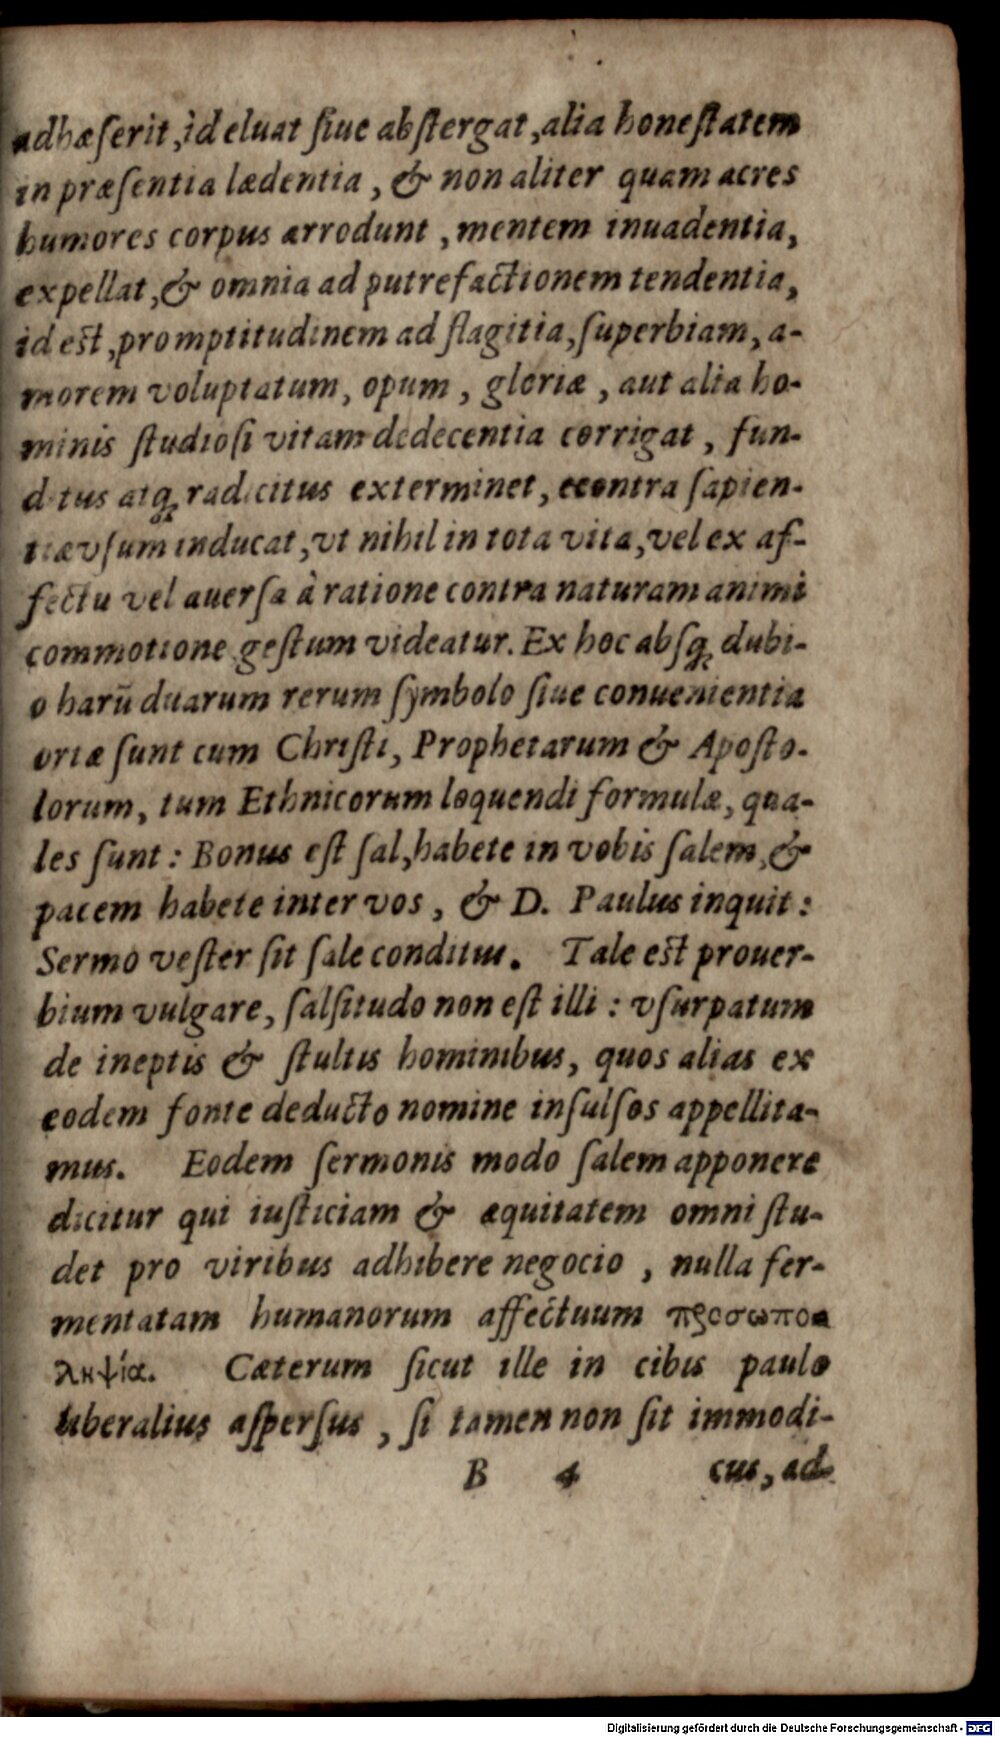 adhæſerit, id eluat ſiue abſtergat, alia honeſtatem
in præſentia lædentia, & non aliter quam acres
humores corpus arrodunt, mentem inuadentia,
expellat, & omnia ad putrefactionem tendentia,
id eſt, promptitudinem ad flagitia, ſuperbiam, a-
morem voluptatum, opum, gloriæ, aut alia ho-
minis ſtudioſi vitam dedecentia corrigat, fun-
ditus atq; radicitus exterminet, econtra ſapien-
tiæ vſum inducat, vt nihil in tota vita, vel ex af-
fectu vel auerſa à ratione contra naturam animi
commotione geſtum videatur. Ex hoc abſq; dubi-
o harū duarum rerum ſymbolo ſiue conuenientia
ortæ ſunt cum Chriſti, Prophetarum & Apoſto-
lorum, tum Ethnicorum loquendi formulæ, qua-
les ſunt: Bonus eſt ſal, habete in vobis ſalem, &
pacem habete inter vos, & D. Paulus inquit:
Sermo veſter ſit ſale conditus. Tale eſt prouer-
bium vulgare, ſalſitudo non eſt illi: vſurpatum
de ineptis & ſtultis hominibus, quos alias ex
eodem fonte deducto nomine inſulſos appellita-
mus. Eodem ſermonis modo ſalem apponere
dicitur qui iuſticiam & æquitatem omni ſtu-
det pro viribus adhibere negocio, nulla fer-
mentatam humanorum affectuum προσωπο-
ληψία. Cæterum ſicut ille in cibis paulo
liberalius aſperſus, ſi tamen non ſit immodi-
B 4 cus, ad-
Digitalisierung gefördert durch die Deutsche Forschungsgemeinschaft - DFG